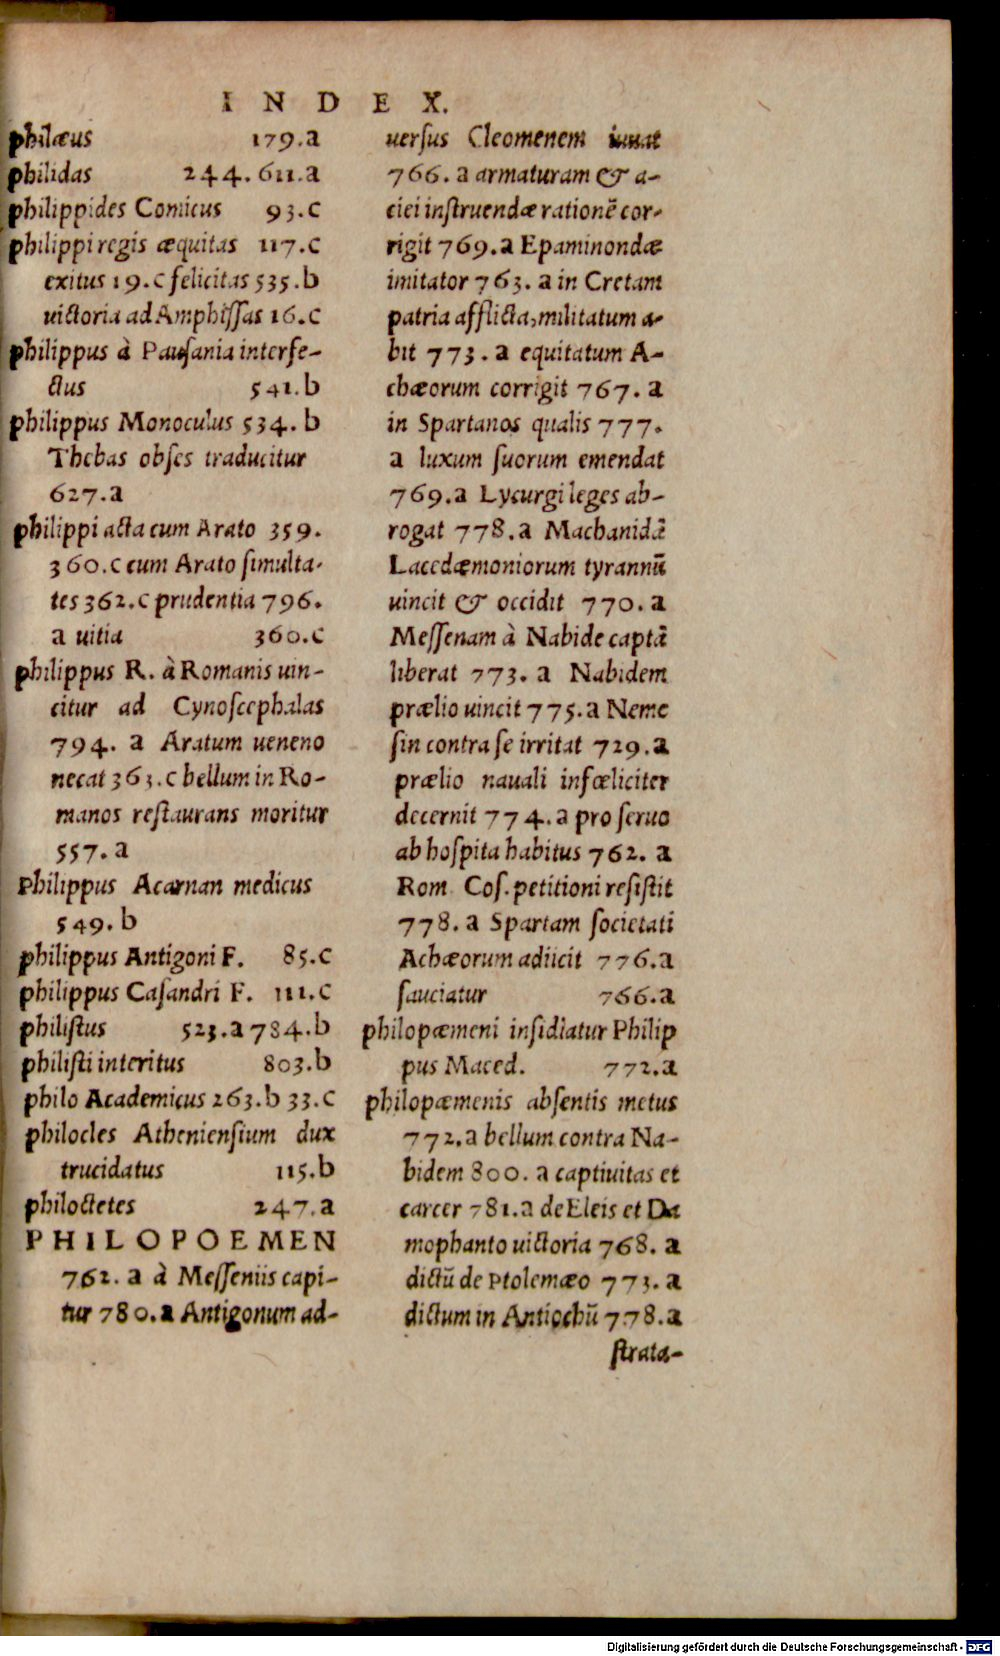 INDEX.
philæus 179.a
philidas 244. 611.a
philippides Comicus 93.c
philippi regis æquitas 117.c
exitus 19.c felicitas 535.b
uictoria ad Amphiſſas 16.c
philippus à Pauſania interfe-
ctus 541.b
philippus Monoculus 534. b
Thebas obſes traducitur
627.a
philippi acta cum Arato 359.
360.c cum Arato ſimulta-
tes 362.c prudentia 796.
a uitia 360.c
philippus R. à Romanis uin-
citur ad Cynoſcephalas
794. a Aratum ueneno
necat 363.c bellum in Ro-
manos reſtaurans moritur
557.a
Philippus Acarnan medicus
549.b
philippus Antigoni F. 85.c
philippus Caſandri F. 111.c
philiſtus 523.a 784.b
philiſti interitus 803.b
philo Academicus 263.b 33.c
philocles Athenienſium dux
trucidatus 115.b
philoctetes 247.a
PHILOPOEMEN
762. a à Meſſeniis capi-
tur 780.a Antigonum ad-
uerſus Cleomenem iuuat
766. a armaturam & a-
ciei inſtruendæ rationẽ cor-
rigit 769.a Epaminondæ
imitator 763. a in Cretam
patria afflicta, militatum a-
bit 773. a equitatum A-
chæorum corrigit 767. a
in Spartanos qualis 777.
a luxum ſuorum emendat
769.a Lycurgi leges ab-
rogat 778.a Machanidã
Lacedæmoniorum tyrannũ
uincit & occidit 770. a
Meſſenam à Nabide captã
liberat 773. a Nabidem
prælio uincit 775.a Neme
ſin contra ſe irritat 729.a
prælio nauali infœliciter
decernit 774.a pro ſeruo
ab hoſpita habitus 762. a
Rom Coſ. petitioni reſiſtit
778.a Spartam ſocietati
Achæorum adiicit 776.a
ſauciatur 766.a
philopæmeni inſidiatur Philip
pus Maced. 772.a
philopæmenis abſentis metus
772.a bellum contra Na-
bidem 800. a captiuitas et
carcer 781.a de Eleis et Da
mophanto uictoria 768. a
dictũ de Ptolemæo 773. a
dictum in Antiochũ 778.a
ſtrata-
Digitalisierung gefördert durch die Deutsche Forschungsgemeinschaft - DFG